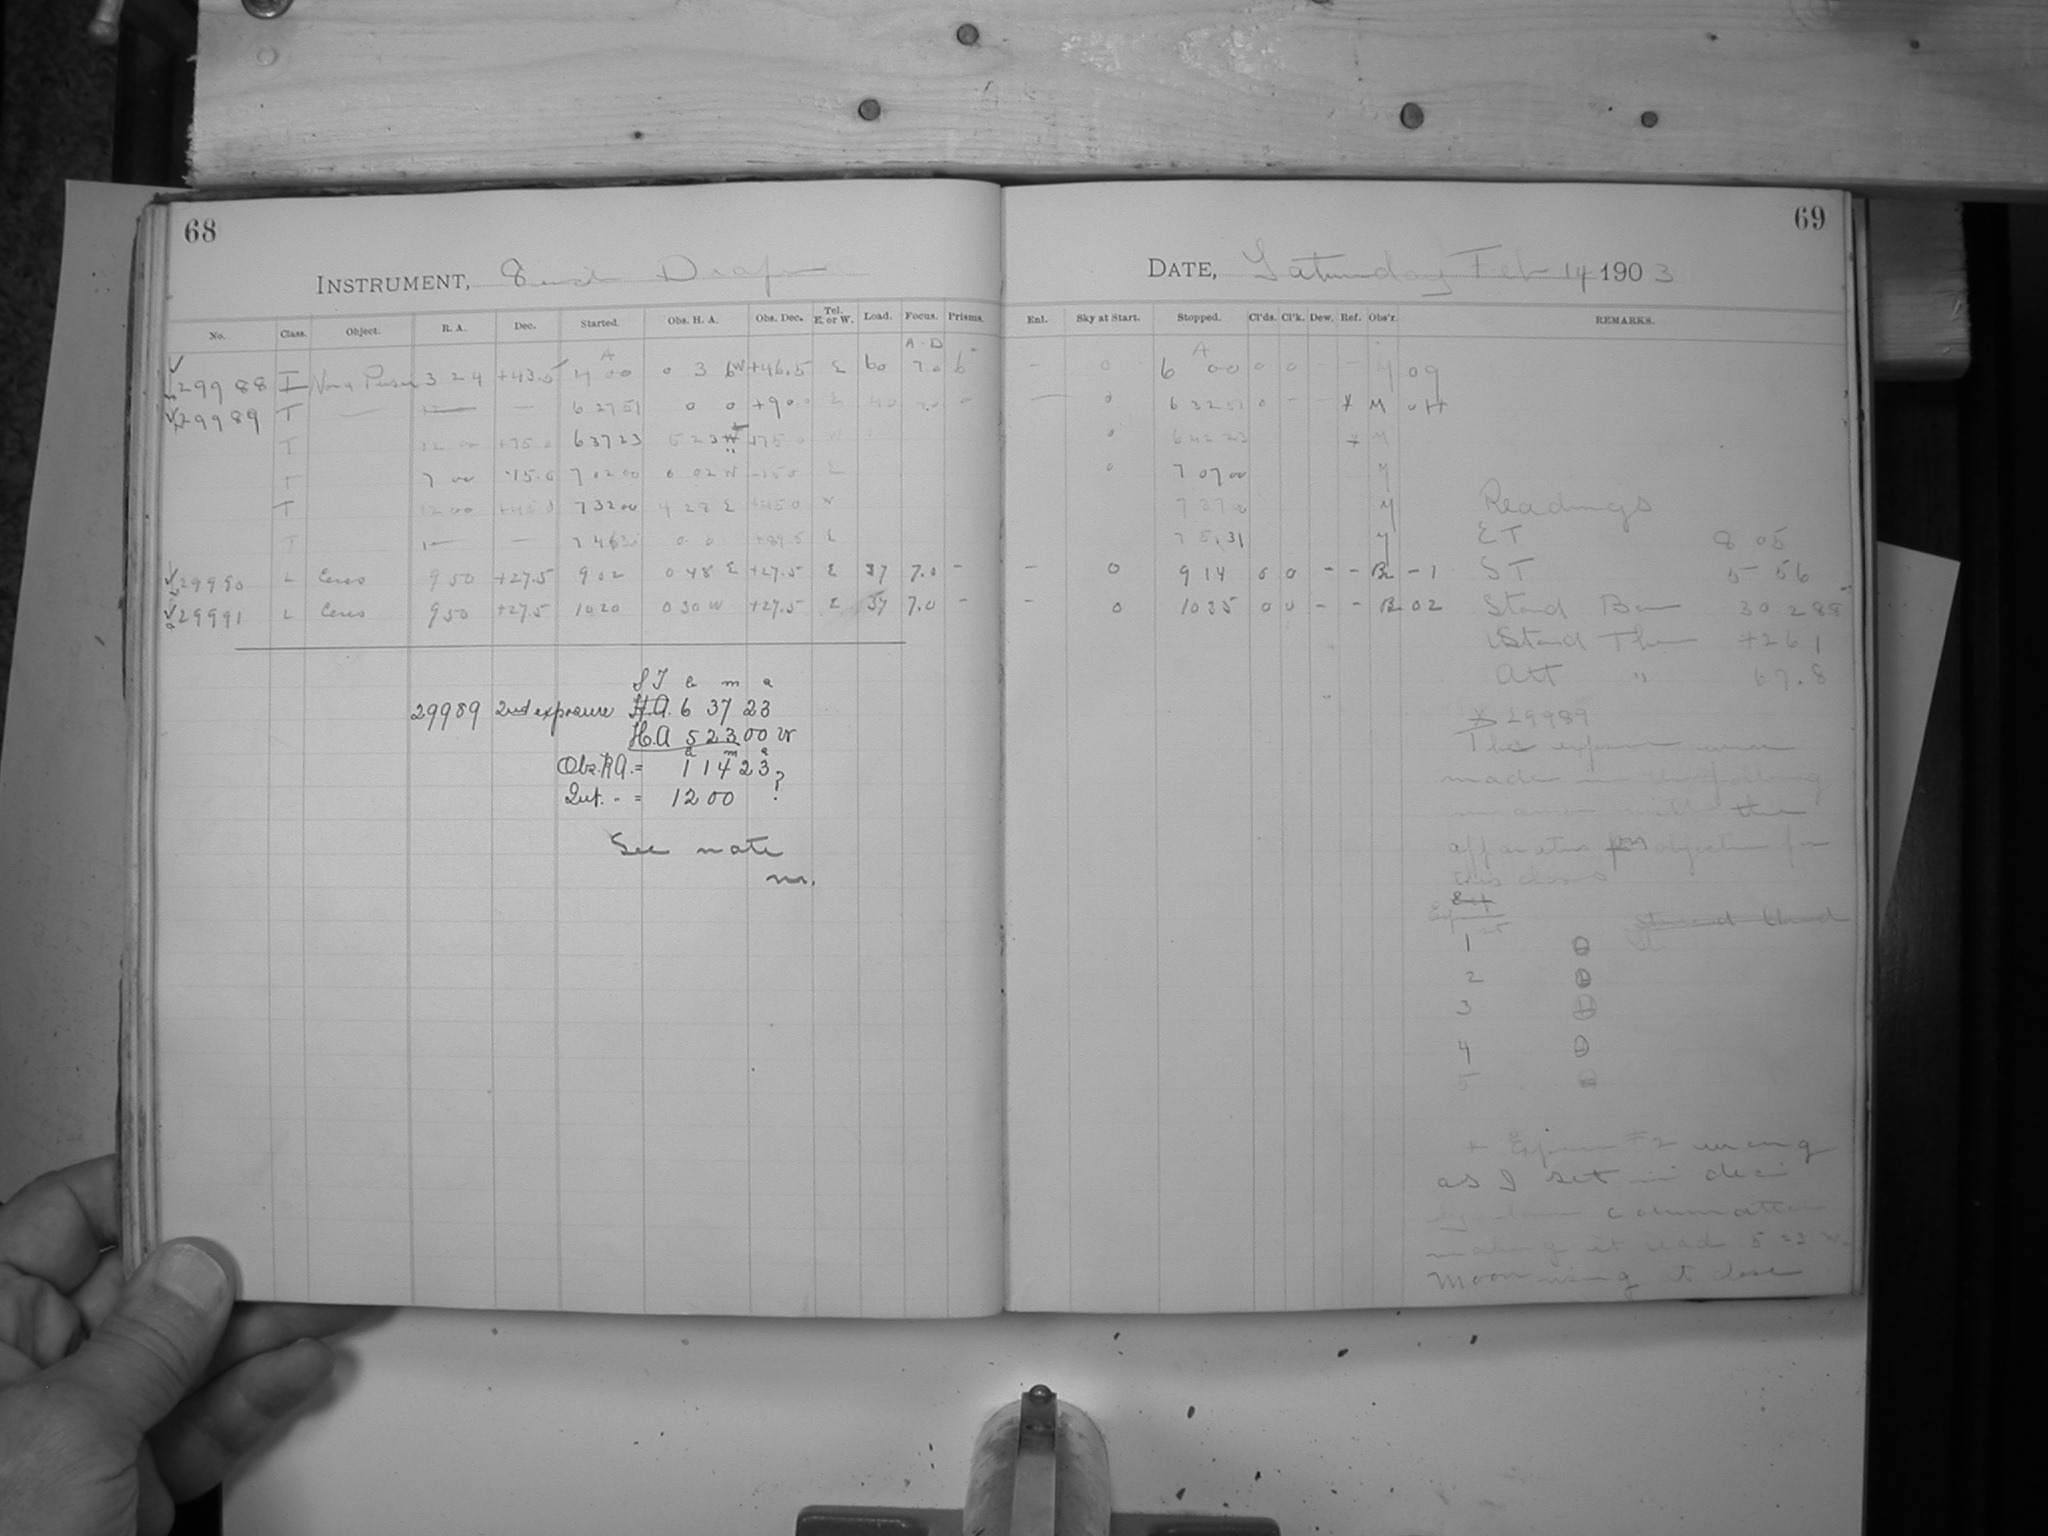 68
INSTRUMENT, 8 inch Draper
No. Class. Object. R. A. Dec. Started. Obs. H. A. Obs. Dec. Tel. E. or W. Load. Focus. Prisms.
A A D
29988 I Nova Persei 3 24 +43.5 4 00 0 3 6 W +46.5 E 60 7.0 6
29989 T — — — 6 27 51 0 0 +90 0 E 40 7.0 -
T 12 00 +75.0 6 37 23 5 23 W +75 0 W
T 7 00 -15.0 7 02 00 0 02 W -15 0 E
T 12 00 +45.0 7 32 00 4 28 E +45.0 W
T — — 7 46 0 0 +89.5 E
29990 L Ceres 9 50 +27.5 9 02 0 48 E +27.5 E 37 7.0 -
29991 L Ceres 9 50 +27.5 10 20 0 30 W +27.5 E 37 7.0 -
S T h m s
29989 2nd exposure H.A. 6 37 23
H.A 5 23 00 W
h m s
Obs. R.A. = 1 14 23 ?
Int. " = 12 00
See note
m.
69
DATE, Saturday Feb 14 1903
Enl. Sky at Start. Stopped. Cl'ds. Cl'k. Dew. Ref. Obs'r. REMARKS.
A
- 0 6 00 0 0 - - M 09
— 0 6 32 51 0 - - X M
0 6 42 23 X M
0 7 07 00 M
7 37 00 M
7 51 31 M
- 0 9 14 0 0 - - B -1
- 0 10 35 0 0 - - B 02
Readings
ET 8 05
ST 5 56
Stand Bar 30.288
Stand Ther +26 1
Att " 67.8
X 29989
The exposures were
made in the following
manner with the
apparatus on objective for
this class
Exp
1
2
3
4
5
+ Exposure #2 wrong
as I set in dec
making it read 5 23 W
Moon using to close